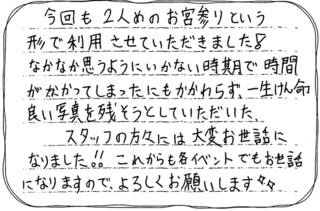 今回も 2人めのお宮参りという
形で利用 させていただきました!
なかなか思うようにいかない時期で 時間
がかかってしまったにもかかわらず、一生けん命
良い写真を残そうとしていただいた、
スタッフの方々には 大変お世話に
なりました!! これからも各イベントでもお世話
になりますので、よろしくお願いします